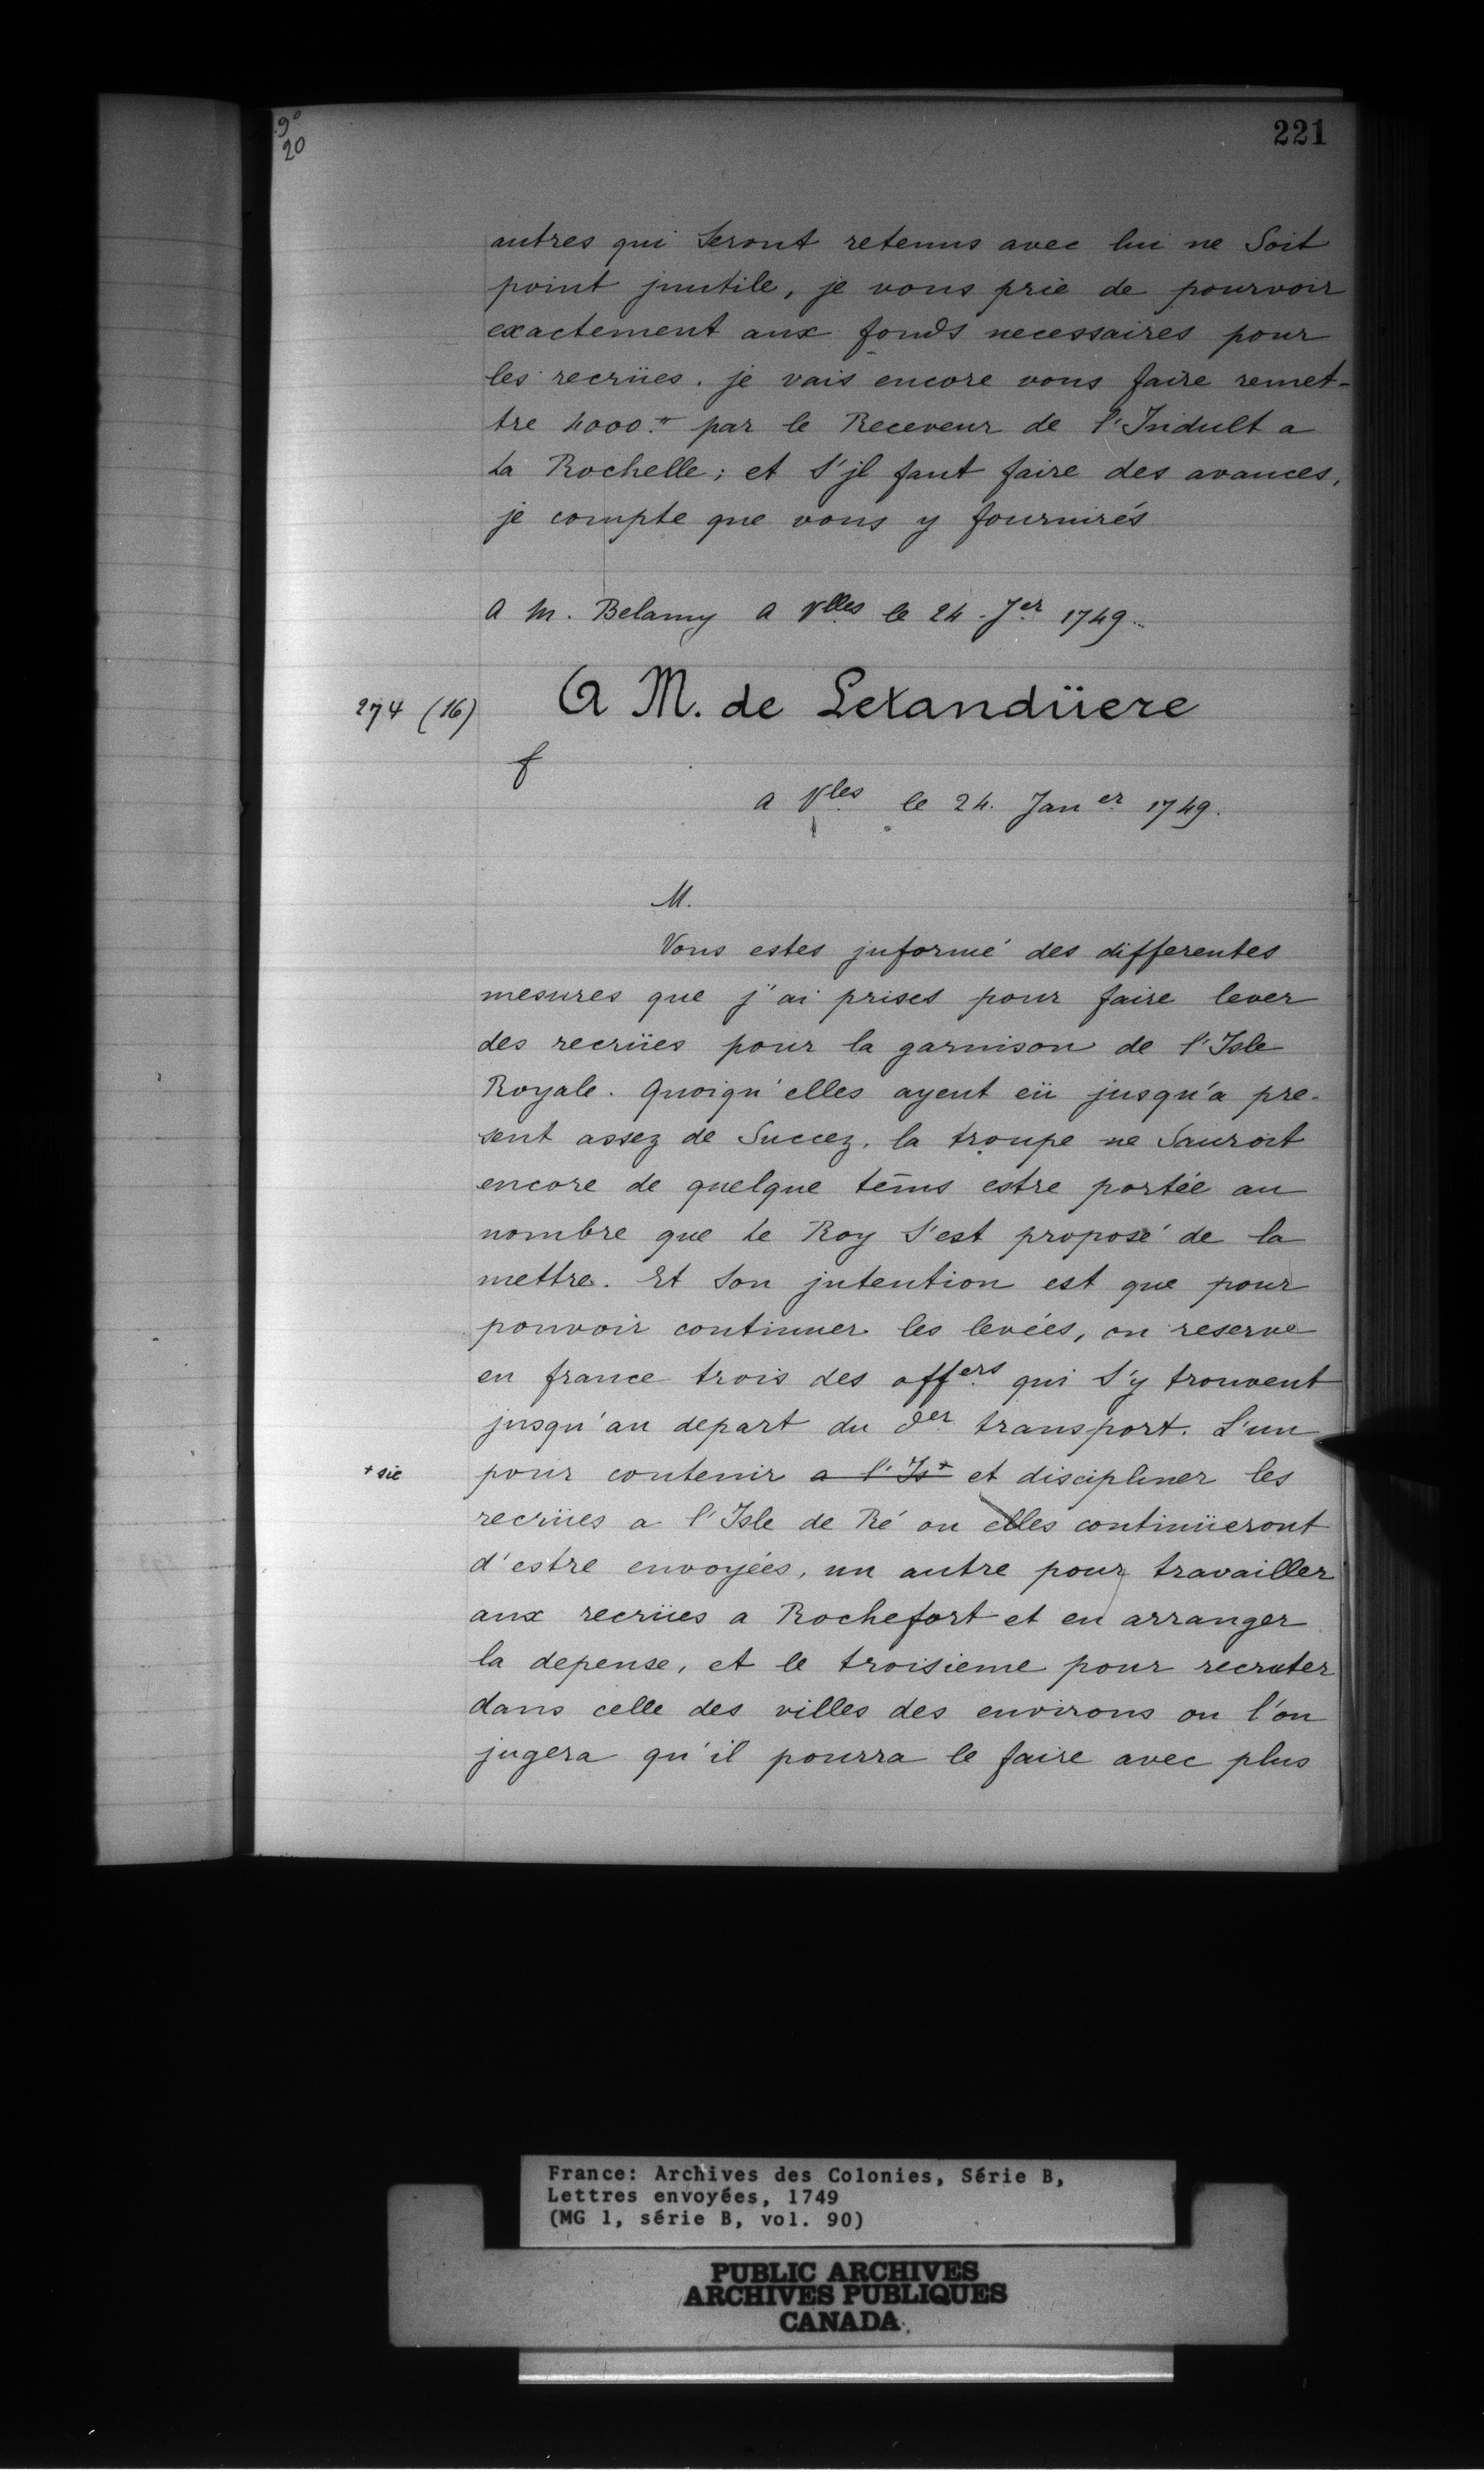 9º
20
221
autres qui seront retenus avec lui ne Soit
point jnutile, je vous prie de pourvoir
exactement aux fonds necessaires pour
les recrües. je vais encore vous faire remet-
tre 4000.# par le Receveur de l'Indult a
La Rochelle; et S'jl faut faire des avances,
je compte que vous y fournirés
A M. Belamy A Vlles le 24 Jer 1749.
274 (16)
A M. de Letanduere
f
a Vles le 24. Janer 1749.
M.
Vous estes jnformé des differentes
mesures que j'ai prises pour faire lever
des recrües pour la garnison de l'Isle
Royale. Quoiqu'elles ayent eü jusqu'a pre-
sent assez de Succez, la troupe ne Sauroit
encore de quelque tems estre portée au
nombre que Le Roy S'est proposé de la
mettre. Et Son jntention est que pour
pouvoir continuer les levées, on reserve
en france trois des offers qui S'y trouvent
jusqu'au depart du der transport. L'un
+ sic
pour contenir a l'Is+ et discipliner les
recrües a l'Isle de Ré ou elles continüeront
d'estre envoyées, un autre pour travailler
aux recrües a Rochefort et en arranger
la depense, et le troisieme pour recruter
dans celle des villes des environs ou l'on
jugera qu'il pourra le faire avec plus
France: Archives des Colonies, Série B,
Lettres envoyées, 1749
(MG 1, série B, vol. 90)
PUBLIC ARCHIVES
ARCHIVES PUBLIQUES
CANADA